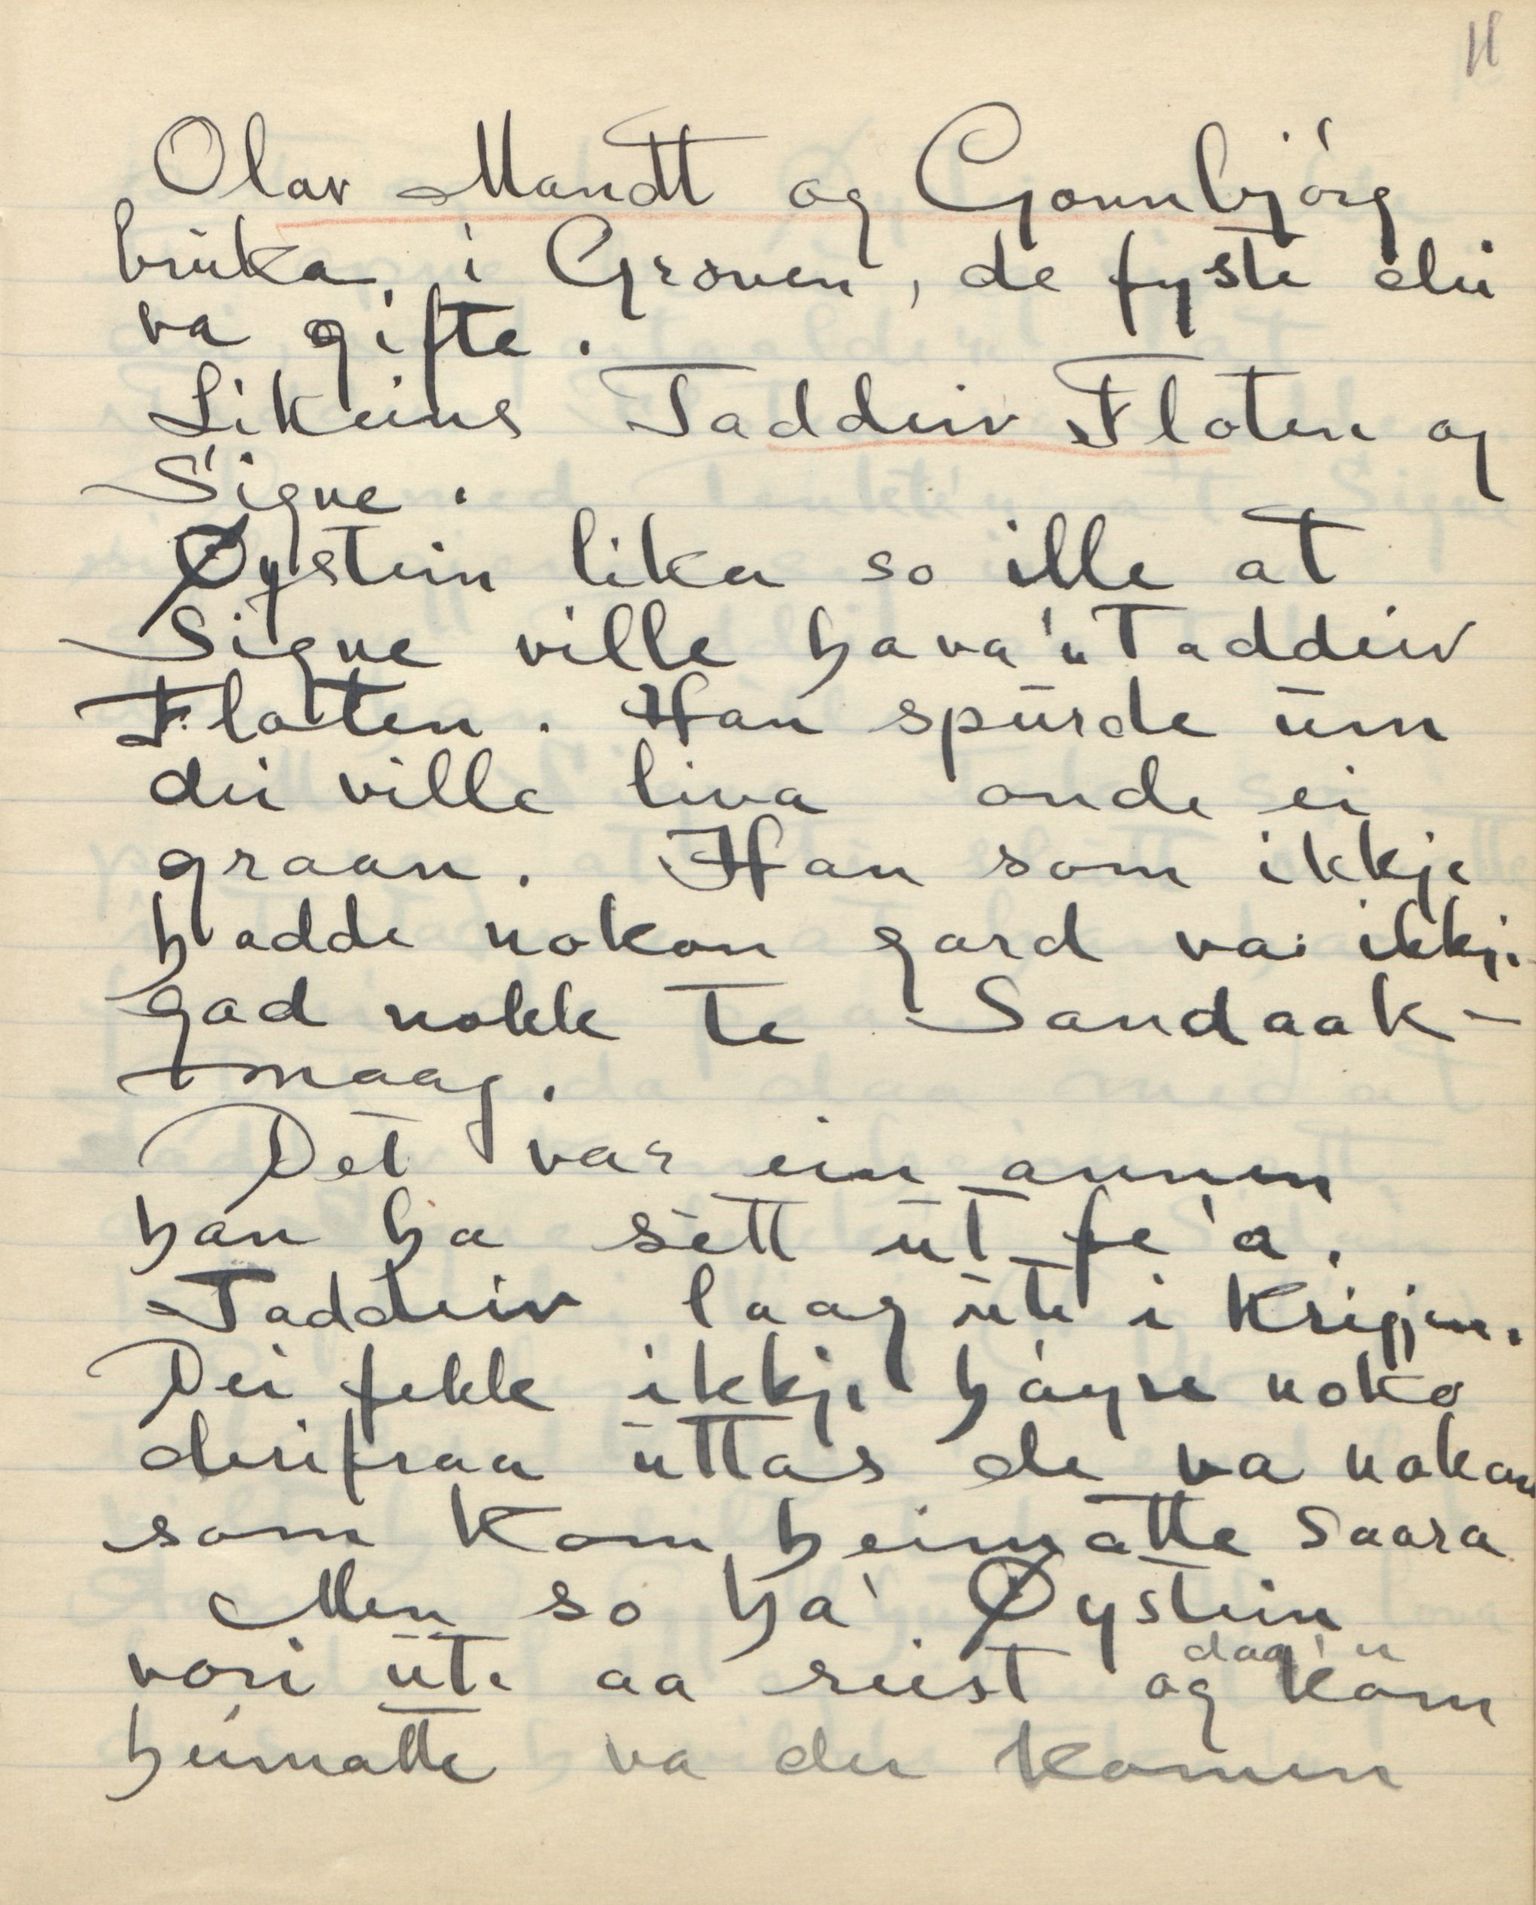 11
Olav Mandt og Gonnbjórg
brúka i Groven, de fyste dei
va gifte.
Likeins Taddeiv Floten og
Signe.
Øystein lika so ille at
Signe ville hava'n Taddeiv
Flotten. Han spurde um
dei ville liva onde ei
graan. Han som ikkje
hadde nokon gard va ikkje
gad nokk te Sandaak-
maag.
Det var ein annen
han ha sett ut fe'a.
Taddeiv laag ute i Krigjen.
Dei fekk ikkje háyre noko
derifraa uttas de va nokon
som kom heimatte saara
Men so ha' Øystein
vori ute aa reist og daa'n kom
heimatte va dei komen